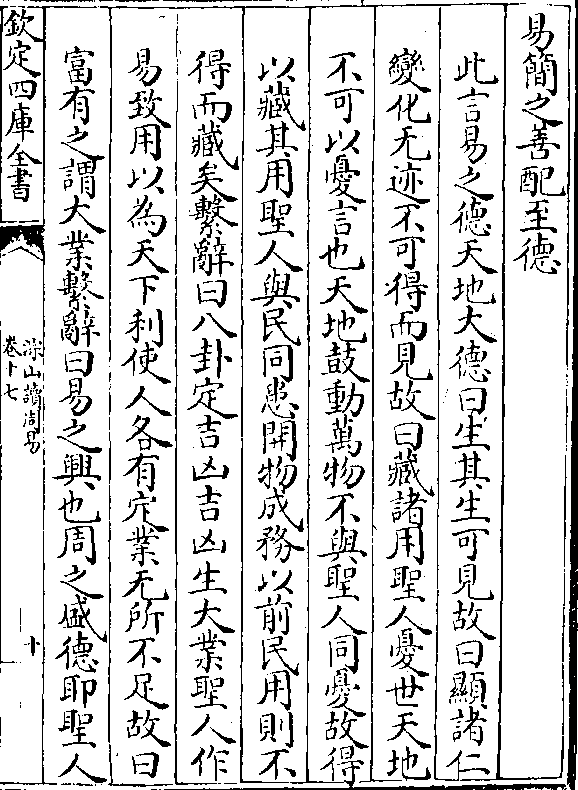 易簡之善配至德
此言易之德天地大德曰生其生可見故曰顯諸仁
變化无迹不可得而見故曰藏諸用聖人憂世天地
不可以憂言也天地鼓動萬物不與聖人同憂故得
以藏其用聖人與民同患開物成務以前民用則不
得而藏矣繫辭曰八卦定吉凶吉凶生大業聖人作
易致用以為天下利使人各有定業无所不足故曰
富有之謂大業繫辭曰易之興也周之盛德耶聖人
欽定四庫全書
涂山讀周易
卷十七
十